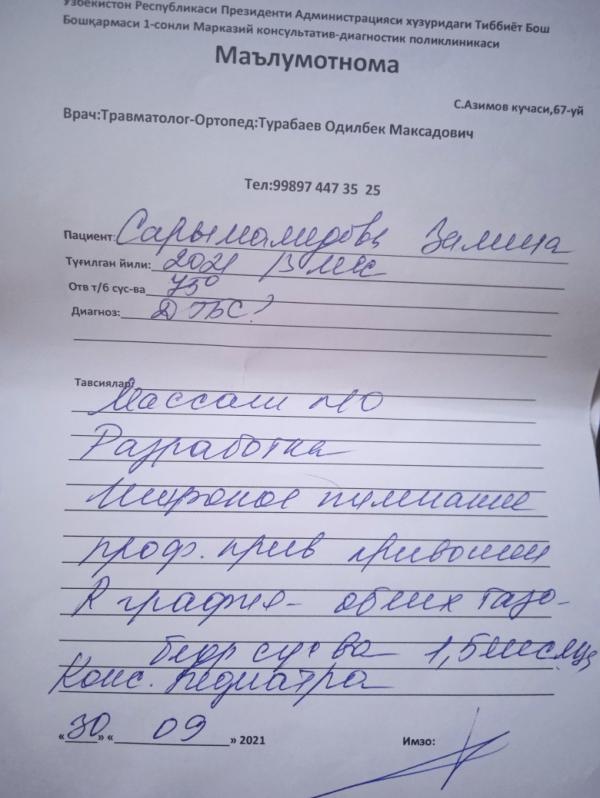 Ўзбекистон Республикаси Президенти Администрацияси хузуридаги Тиббиёт Бош
Бошқармаси 1-сонли Марказий консультатив-диагностик поликлиникаси
Маълумотнома
С.Азимов кучаси,67-уй
Врач:Травматолог-Ортопед:Турабаев Одилбек Максадович
Тел:99897 447 35 25
Пациент: Сарымамедова Залина
Туғилган йили: 2021 мес
Отв т/б сус-ва 75°
Диагноз: ДТБС?
Тавсиялар:
Массаж №10
Разработка
Широкое пеленание
проф. прив
R графия - обеих тазо-
бедр сус ва 1,5 месяц
Конс. педиатра
«30» « 09 » 2021
Имзо: